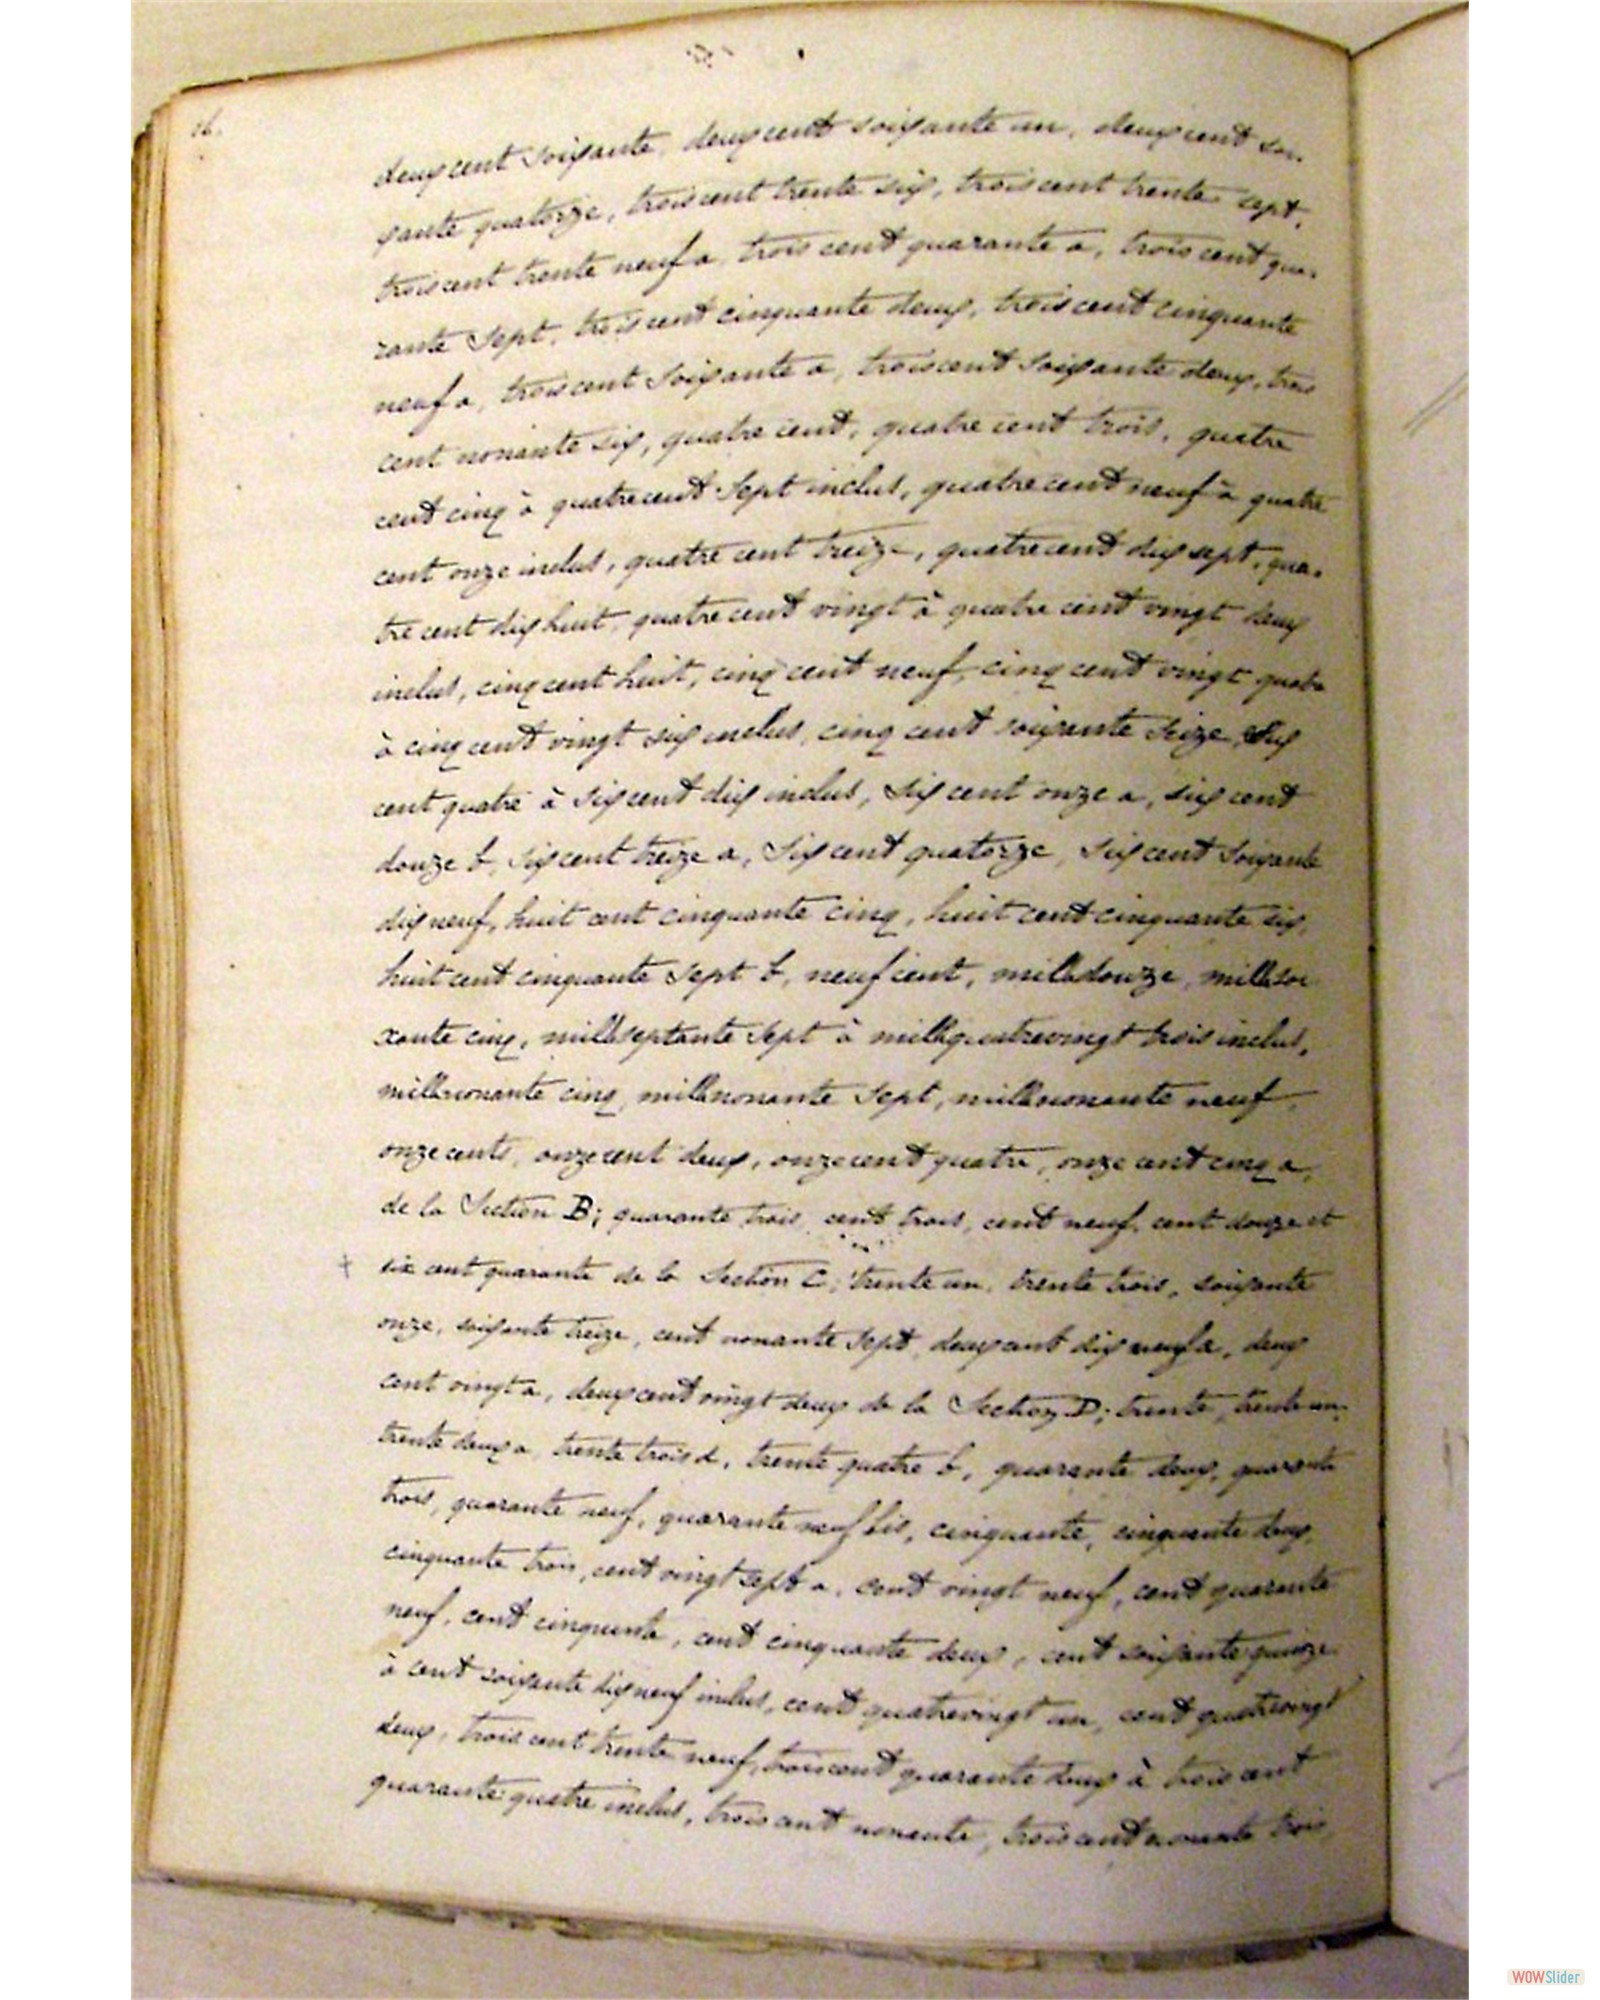 16.
deux cent soixante, deux cent soixante un, deux cent soi-
xante quatorze, trois cent trente six, trois cent trente sept,
trois cent trente neuf a, trois cent quarante a, trois cent qua-
rante sept, trois cent cinquante deux, trois cent cinquante
neuf a, trois cent soixante a, trois cent soixante deux, trois
cent nonante six, quatre cent, quatre cent trois, quatre
cent cinq à quatre cent sept inclus, quatre cent neuf à quatre
cent onze inclus, quatre cent treize, quatre cent dix sept, qua-
tre cent dix huit, quatre cent vingt à quatre cent vingt deux
inclus, cinq cent huit, cinq cent neuf, cinq cent vingt quatre
à cinq cent vingt six inclus, cinq cent soixante seize, six
cent quatre à six cent dix inclus, six cent onze a, six cent
douze b, six cent treize a, six cent quatorze, six cent soixante
dix neuf, huit cent cinquante cinq, huit cent cinquante six,
huit cent cinquante sept b, neuf cent, mille douze, mille soi
xante cinq, mille septante sept à mille quatrevingt trois inclus,
mille nonante cinq, mille nonante sept, mille nonante neuf,
onze cents, onze cent deux, onze cent quatre, onze cent cinq a,
de la Section B; quarante trois, cent trois, cent neuf, cent douze et
six cent quarante de la Section C; trente un, trente trois, soixante
onze, soixante treize, cent nonante sept, deux cent dix neuf a, deux
cent vingt a, deux cent vingt deux de la Section D; trente, trente un,
trente deux a, trente trois d, trente quatre b, quarante deux, quarante
trois, quarante neuf, quarante neuf bis, cinquante, cinquante deux,
cinquante trois, cent vingt sept a, cent vingt neuf, cent quarante
neuf, cent cinquante, cent cinquante deux, cent soixante quinze
à cent soixante dix neuf inclus, cent quatrevingt un, cent quatrevingt
deux, trois cent trente neuf, trois cent quarante deux à trois cent
quarante quatre inclus, trois cent nonante, trois cent nonante trois
WOWSlider